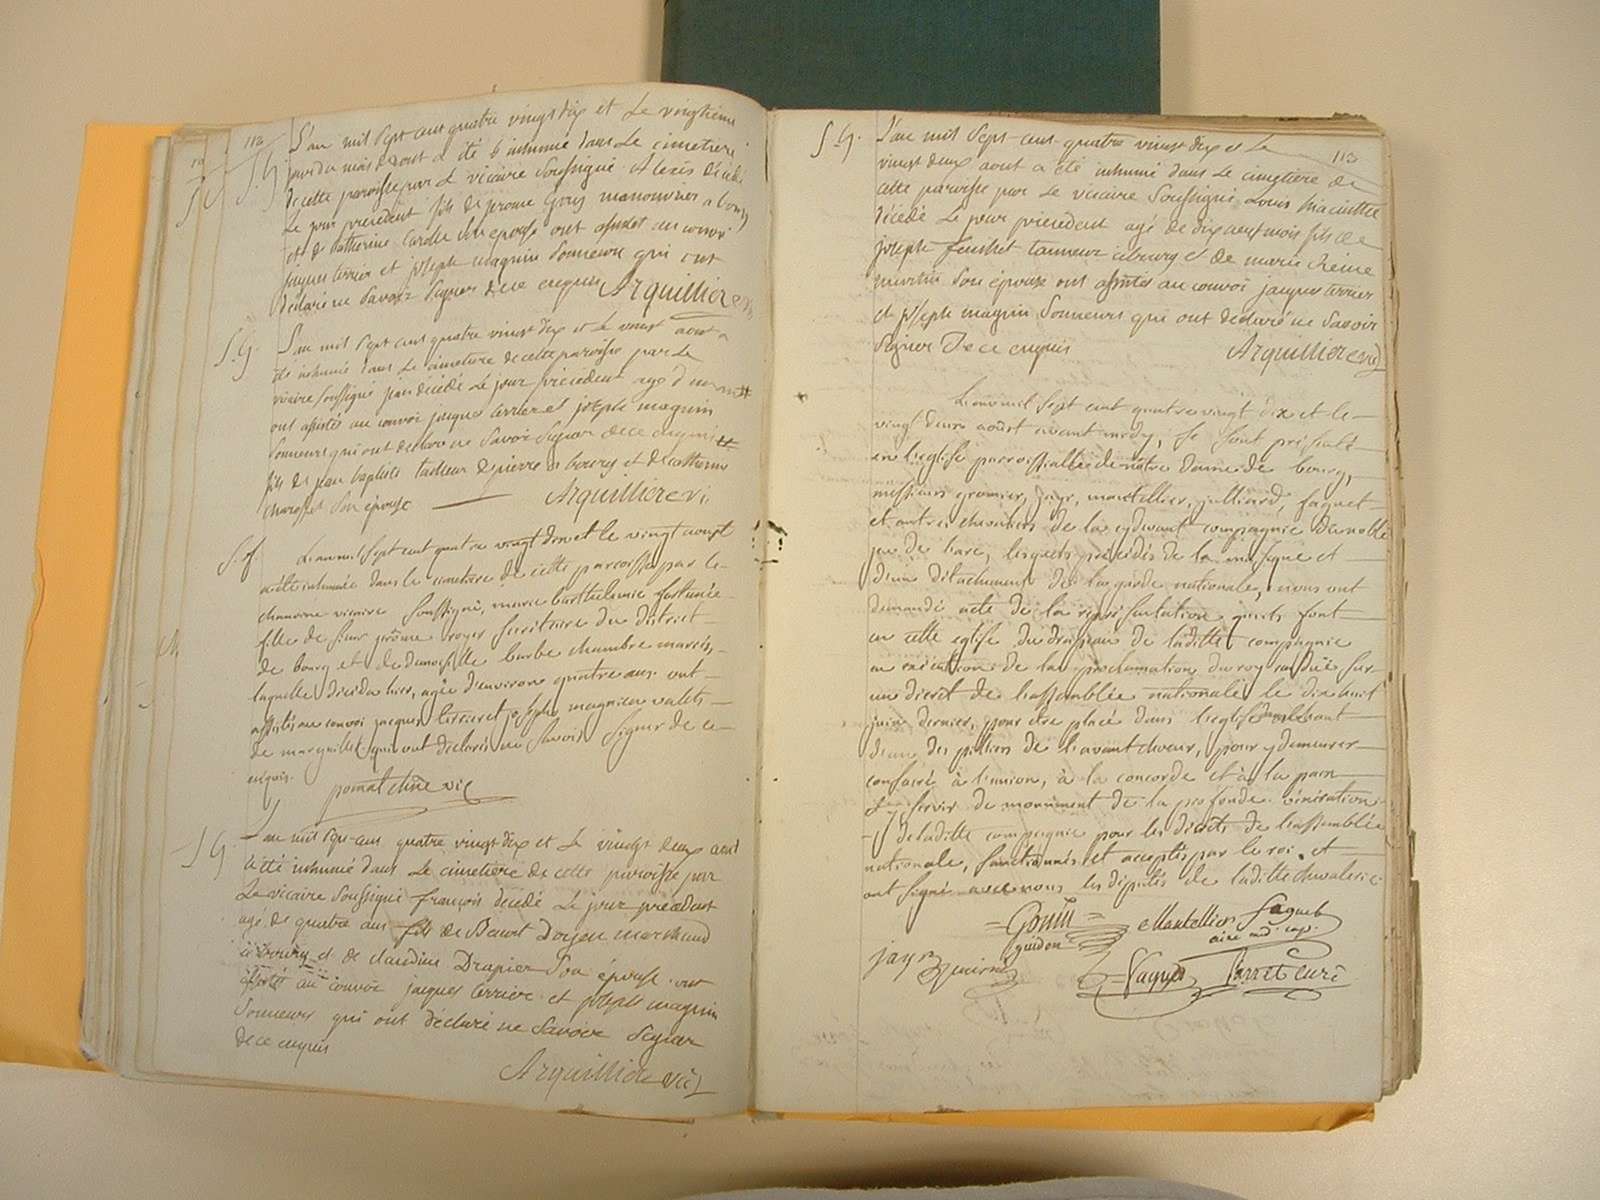 112
S.G.
L'an mil sept cent quatre vingt dix et Le vingtieme
jour du mois d'aout a été inhumé dans Le cimetiere
de cette paroisse par Le vicaire Soussigné Alexis décédé
Le jour precedent fils de jerome Goux manouvrier a bourg
et de Catherine son epouse ont assisté au convoi
jaques terrier et joseph magnin Sonneurs qui ont
déclaré ne Savoir Signer de ce enquis Arquilliere
S.G.
L'an mil sept cent quatre vingt dix et Le vingt aout a
été inhumé dans Le cimetiere de cette paroisse par Le
vicaire Soussigné jean décédé Le jour précédent agé d'un
ont assistés au convoi jaques terrier et joseph magnin
Sonneurs qui ont déclaré ne Savoir Signer de ce enquis
fils de jean baptiste tailleur de pierre a bourg et de catherine
Son épouse Arquilliere vi
S.f.
L'an mil sept cent quatre vingt dix et le vingt aoust
a été inhumée dans le cimetiere de cette parroisse par le
chanoine vicaire soussigné, marie barthelemie fortunée
fille de sieur jerôme royer secrétaire du district
de bourg et de demoiselle barbe chambre mariés,
laquelle décéda hier, agée d'environ quatre ans. ont
assistés au convoi jacques terrier et joseph magnien valets
de marguillier qui ont déclarés ne savoir signer de ce
enquis.
pomat chne vic
S G
L'an mil sept cent quatre vingt dix et Le vingt deux aout
a été inhumé dans Le cimetiere de cette paroisse par
Le vicaire Soussigné françois décédé Le jour précédent
agé de quatre ans fils de Benoit Doyen marchand
a bourg et de claudine Drapier Son épouse ont
assisté au convoi jacques terrier et joseph magnin
Sonneurs qui ont déclaré ne Savoir Signer
de ce enquis
Arquilliere vic
113
S.G.
L'an mil Sept cent quatre vingt dix et Le
vingt deux aout a été inhumé dans Le cimetiere de
cette paroisse par Le vicaire Soussigné Louis hiacinthe
décédé Le jour précédent agé de dix neuf mois fils de
joseph tanneur a bourg et de marie Reine
Son épouse ont assistés au convoi jacques terrier
et joseph magnin Sonneurs qui ont déclaré ne Savoir
Signer De ce enquis Arquilliere vic
L'an mil sept cent quatre vingt dix et le
vingt deux aoust avant midy, se sont présentés
en l'eglise parroissialle de nôtre dame de bourg,
messieurs gromier, jayr, mantellier, julliard, faguet
et autres chevaliers de la cydevant compagnie du noble
jeu de l'arc, lesquels précédés de la musique et
d'un détachement de la garde nationale, nous ont
demandé acte de la représentation qu'ils font
en cette eglise du drapeau de laditte compagnie
en exécution de la proclamation du roy rendüe sur
un décret de l'assemblée nationale le dix huit
juin dernier, pour être placé dans l'eglise au devant
d'un des pilliers de l'avant choeur, pour y demeurer
consacré à l'union, à la concorde et à la paix
et servir de monument de la profonde vénération
de laditte compagnie pour les décrets de l'assemblée
nationale, sanctionnés et acceptés par le roi. et
ont signé avec nous les députés de laditte chevalerie.
guidon Mantellier faguet
ainé cap.
jayr
Faguet curé